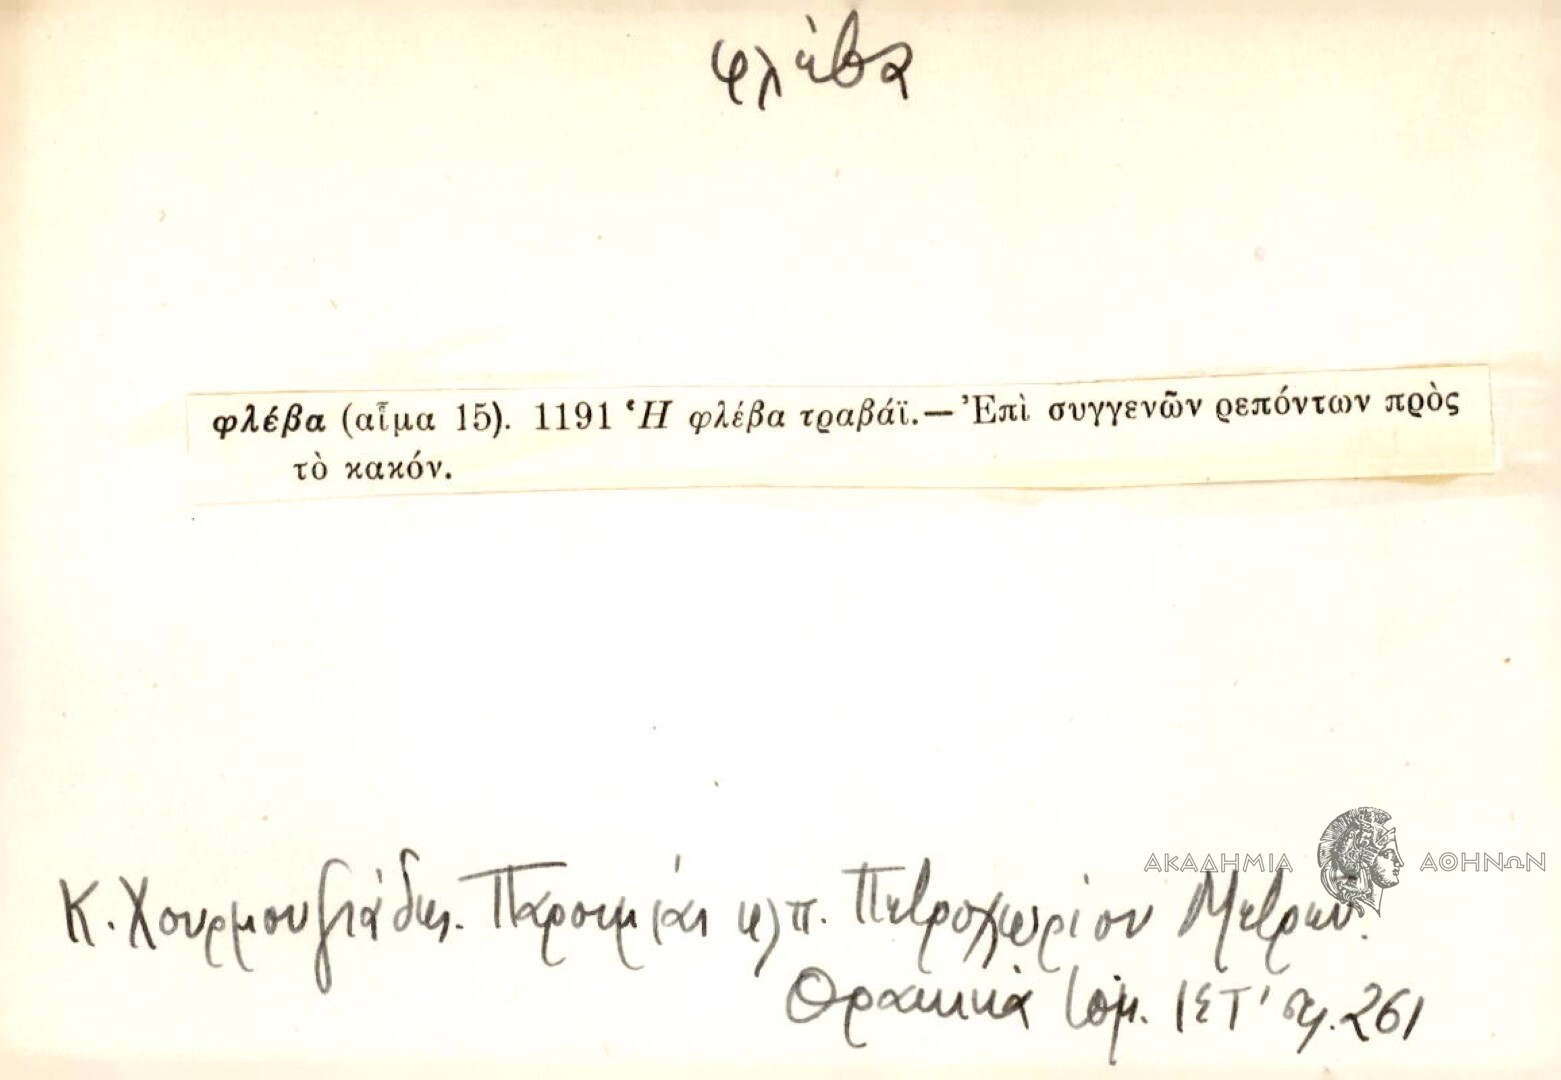 φλέβα
φλέβα (αἷμα 15). 1191 Ἡ φλέβα τραβάϊ.—Ἐπὶ συγγενῶν ρεπόντων πρὸς
τὸ κακόν.
ΑΚΑΔΗΜΙΑ ΑΘΗΝΩΝ
Κ. Χουρμουζιάδης. Παροιμίαι κλπ. Πετροχωρίου Μετρῶν.
Θρακικὰ τόμ. ΙΣΤ' σελ. 261